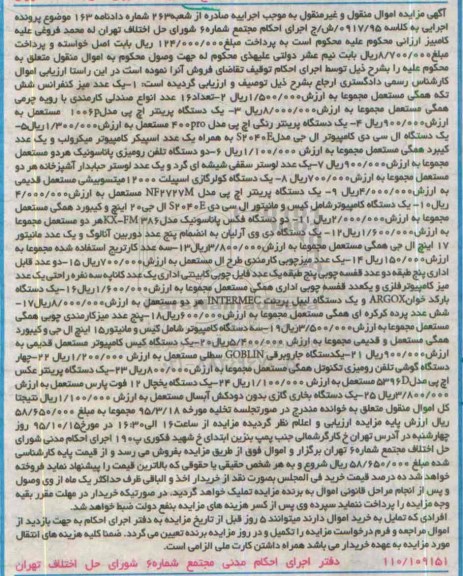 آگهی مزایده اموال منقول و غیرمنقول به موجب اجراییه صادره از شعبه۲۶۳ شماره دادنامه ۱۶۳ موضوع پرونده
اجرایی به کلاسه ۰۹۱۷/۹۵/ش/ج اجرای احکام مجتمع شماره۶ شورای حل اختلاف تهران له محمد فروغی علیه
کامبیز ارزانی محکوم علیه محکوم است به پرداخت مبلغ۱۲۴/۰۰۰/۰۰۰ ریال بابت اصل خواسته و پرداخت
مبلغ۸/۷۰۰/۰۰۰ریال بابت نیم عشر دولتی علیهذی محکوم له جهت وصول محکوم به اموال منقول متعلق به
محکوم علیه را بشرح ذیل توسط اجرای احکام توقیف تقاضای فروش آنرا نموده است در این راستا ارزیابی اموال
کارشناس رسمی دادگستری ارجاع بشرح ذیل توصیف و ارزیابی گردیده است: ۱-یک عدد میز کنفرانس شش
تکه همگی مستعمل مجموعا به ارزش۱/۵۰۰/۰۰۰ریال ۲-تعداد۱۶ عدد انواع صندلی کارمندی با رویه چرمی
همگی مستعمل مجموعا به ارزش۸/۰۰۰/۰۰۰ریال ۳- یک دستگاه پرینتر اچ پی مدل۱۰۰۶P مستعمل به
ارزش۹۰۰/۰۰۰ریال ۴-یک دستگاه پرینتر رنگی اچ پی مدل ۴۰۰pro مستعمل به ارزش۱/۳۰۰/۰۰۰ریال۵-
یک دستگاه ال سی دی کامپیوتر ال جی مدلS۲۰۴۰E به همراه یک عدد اسپیکر کامپیوتر میکرولب و یک عدد
کیبرد همگی مستعمل مجموعا به ارزش ۱/۱۰۰/۰۰۰ریال ۶-دو دستگاه تلفن رومیزی پاناسونیک هردو مستعمل
مجموعا به ارزش۹۰۰/۰۰۰ریال ۷-یک عدد لوستر سقفی شیشه ای گرد و یک عدد لوستر حبابدار آشپزخانه هر دو
مستعمل مجموعا به ارزش۷۰۰/۰۰۰ریال ۸-یک دستگاه کولرگازی اسپیلت ۱۲۰۰۰میتسوبیشی مستعمل قدیمی
به ارزش۴/۰۰۰/۰۰۰ریال ۹- یک دستگاه پرینتر اچ پی مدل NF۲۷۲۷M مستعمل به ارزش۴/۰۰۰/۰۰۰
ریال۱۰- یک دستگاه کامپیوترشامل کیس و مانیتور ال سی دی S۲۰۴۰E ال جی۲۰ اینچ و کیبورد همگی مستعمل
مجموعا به ارزش۲/۰۰۰/۰۰۰ریال ۱۱- دو دستگاه فکس پاناسونیک مدلKX-FM۳۸۶هر دو مستعمل مجموعا
به ارزش۱/۶۰۰/۰۰۰ریال ۱۲-یک دستگاه دی وی آرایان به انضمام پنج عدد دوربین آنالوگ و یک عدد مانیتور
۱۷ اینچ ال جی همگی مستعمل مجموعا به ارزش۳/۸۰۰/۰۰۰ریال۱۳-سه عدد کارتریج استفاده شده مجموعا به
ارزش۱۵۰/۰۰۰ریال ۱۴-یک عدد میزچوبی کارمندی طرح ال مستعمل به ارزش۷۰۰/۰۰۰ریال ۱۵-دو عدد فایل
اداری پنج طبقه دو عدد قفسه چوبی پنج طبقه یک عدد فایل چوبی کابینتی اداری یک عدد کاناپه سه نفره راحتی یک عدد
میز کامپیوترفلزی و یکعدد قفسه چوبی اداری همگی مستعمل مجموعا به ارزش۱/۶۰۰/۰۰۰ریال۱۶-یک دستگاه
بارکد خوانARGOX و یک دستگاه لیبل پرینت INTERMEC هر دو مستعمل به ارزش۸/۰۰۰/۰۰۰ریال۱۷-
شش عدد پرده کرکره ای همگی مستعمل مجموعا به ارزش۶۰۰/۰۰۰ریال۱۸-پنج عدد میزکارمندی چوبی همگی
مستعمل مجموعا به ارزش۳/۵۰۰/۰۰۰ریال۱۹-سه دستگاه کامپیوتر شامل کیس و مانیتور۱۵ اینچ ال جی و کیبورد
همگی مستعمل و قدیمی مجموعا به ارزش۵/۴۰۰/۰۰۰ریال۲۰-یک دستگاه کیس کامپیوتر مستعمل قدیمی به
ارزش۹۰۰/۰۰۰ریال ۲۱-یکدستگاه جاروبرقی GOBLIN سطلی مستعمل به ارزش۱/۲۰۰/۰۰۰ ریال ۲۲-چهار
دستگاه گوشی تلفن رومیزی تکنوتل همگی مستعمل مجموعا به ارزش۸۰۰/۰۰۰ریال ۲۳-یک دستگاه پرینتر عکس
اچ پی مدل۵۳۹۶D مستعمل به ارزش ۱/۱۰۰/۰۰۰ ریال ۲۴-یک دستگاه یخچال ۱۲ فوت پارس مستعمل به ارزش
۳/۸۰۰/۰۰۰ریال ۲۵-یک دستگاه بخاری گازی بدون دودکش آبسال مستعمل به ارزش ۱/۱۰۰/۰۰۰ریال نتیجتا
کل اموال منقول متعلق به خوانده مندرج در صورتجلسه تخلیه مورخه ۹۵/۳/۱۸ مجموعا به مبلغ ۵۸/۶۵۰/۰۰۰
ریال ارزش پایه مزایده ارزیابی و اعلام نظر گردیده مزایده از ساعت۱۶ الی۱۶:۳۰ در مورخ۹۵/۱۰/۱۵ روز
چهارشنبه در آدرس تهران خ کارگرشمالی جنب پمپ بنزین ابتدای خ شهید فکوری پ۱۹۰ اجرای احکام مدنی شورای
حل اختلاف مجتمع شماره۶ تهران برگزار و اموال فوق از طریق مزایده بفروش می رسد و از قیمت پایه کارشناسی
شده مبلغ ۵۸/۶۵۰/۰۰۰ ریال شروع و به هر شخص حقیقی یا حقوقی که بالاترین قیمت را پیشنهاد نماید فروخته
خواهد شد ده درصد قیمت خرید فی المجلس بصورت نقد از خریدار اخذ و الباقی ظرف حداکثر یک ماه از وی وصول
و پس از انجام مراحل قانونی اموال به برنده مزایده تملیک خواهد گردید. در صورتیکه خریدار در مهلت مقرر بقیه
وجه مزایده را پرداخت ننماید سپرده وی پس از کسر هزینه های مزایده بنفع دولت ضبط خواهد شد.
افرادی که تمایل به خرید اموال دارند میتوانند ۵ روز قبل از تاریخ مزایده به دفتر اجرای احکام به جهت بازدید از
اموال مراجعه و فرم درخواست مزایده را تکمیل و در روز مزایده برنده تعیین می گردد. ضمنا کلیه هزینه های انتقال
مورد مزایده به عهده خریدار می باشد همراه داشتن کارت ملی الزامی است.
۱۱۰/۱۰۹۱۵۱ دفتر اجرای احکام مدنی مجتمع شماره۶ شورای حل اختلاف تهران